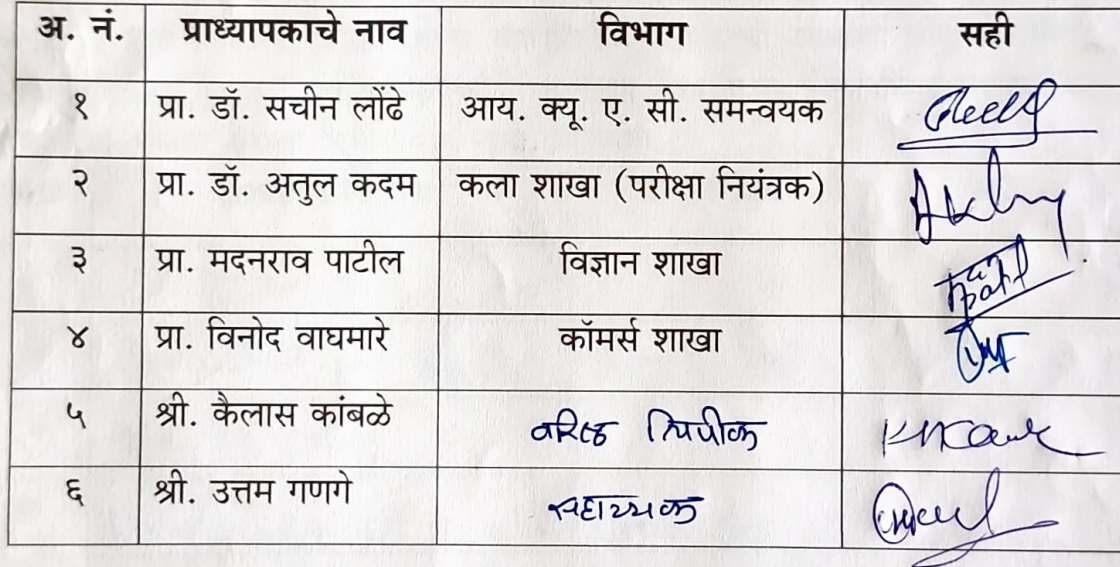 अ. नं. प्राध्यापकाचे नाव विभाग सही
१ प्रा. डॉ. सचीन लोंढे आय. क्यू. ए. सी. समन्वयक
२ प्रा. डॉ. अतुल कदम कला शाखा (परीक्षा नियंत्रक)
३ प्रा. मदनराव पाटील विज्ञान शाखा
४ प्रा. विनोद वाघमारे कॉमर्स शाखा
५ श्री. कैलास कांबळे वरिष्ठ लिपीक
६ श्री. उत्तम गणगे सहाय्यक